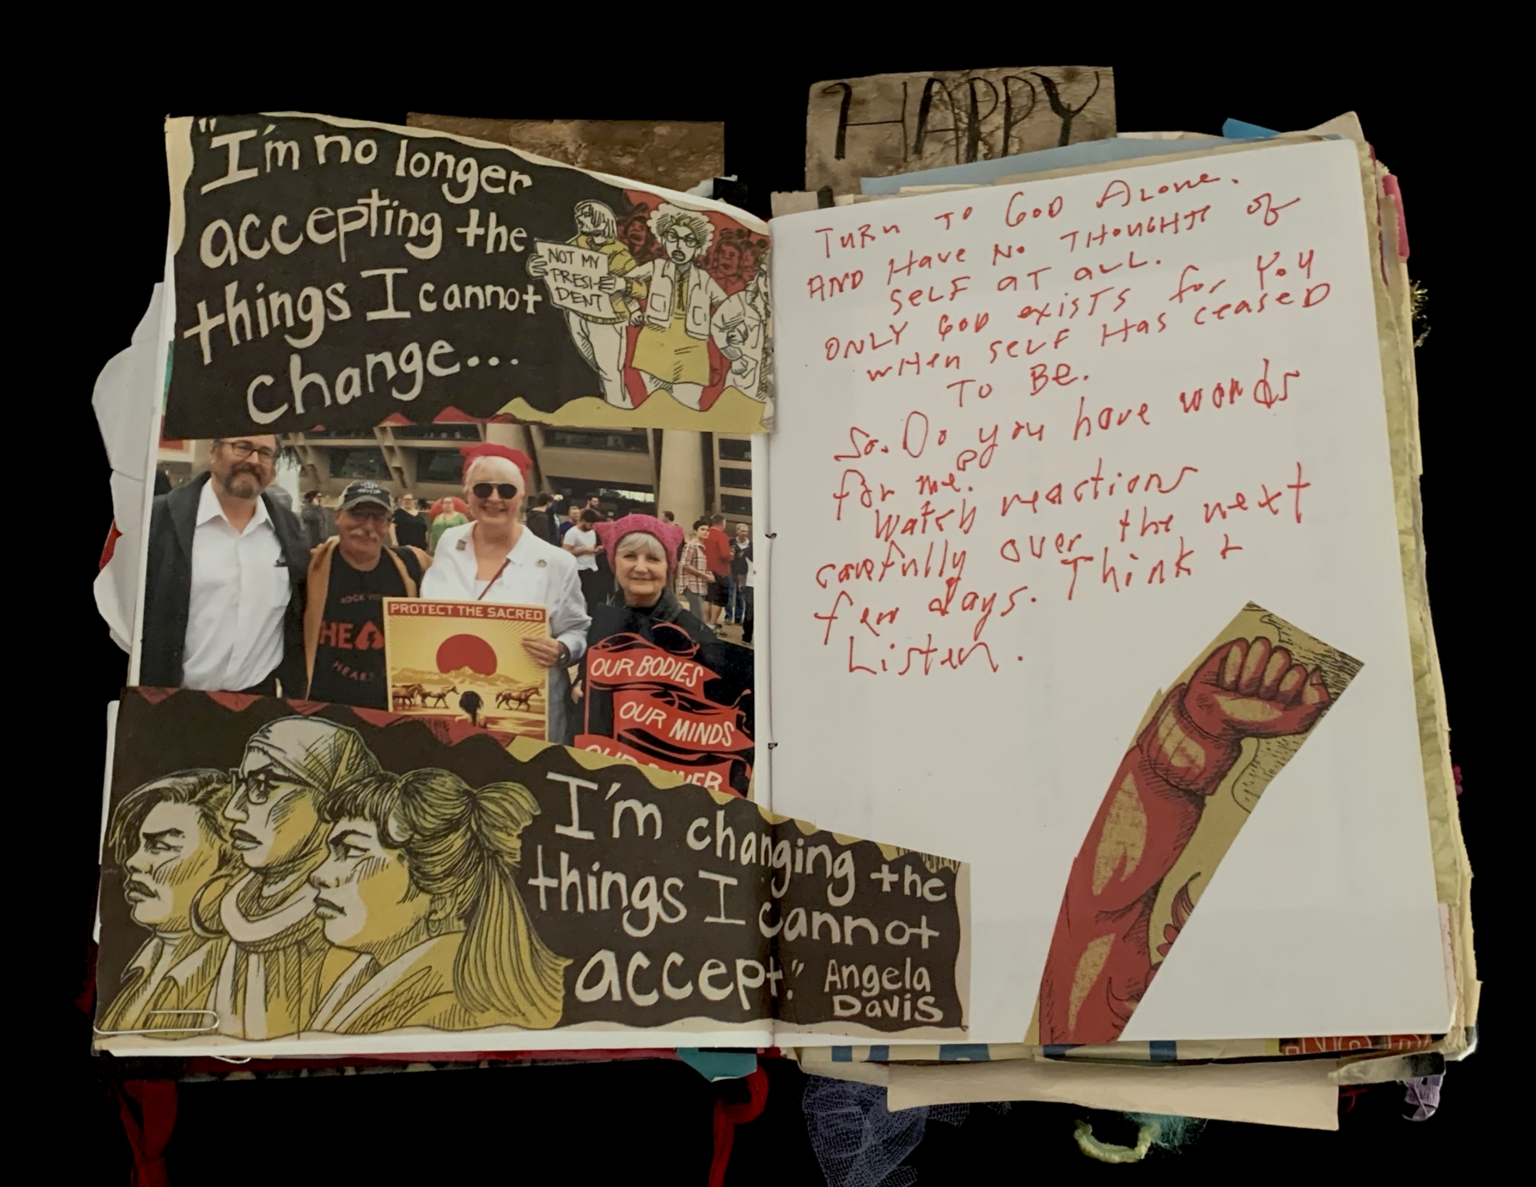 HAPPY
"I'm no longer
accepting the
things I cannot
change...
NOT MY
PRESI-
DENT
PROTECT THE SACRED
HEA
HEART
OUR BODIES
OUR MINDS
I'm changing the
things I cannot
accept." Angela
Davis
TURN TO GOD ALONE.
AND HAVE NO THOUGHTS OF
SELF AT ALL.
ONLY GOD EXISTS for YOU
WHEN SELF HAS CEASED
TO BE.
So. Do you have words
for me?
Watch reactions
carefully over the next
few days. Think &
Listen.